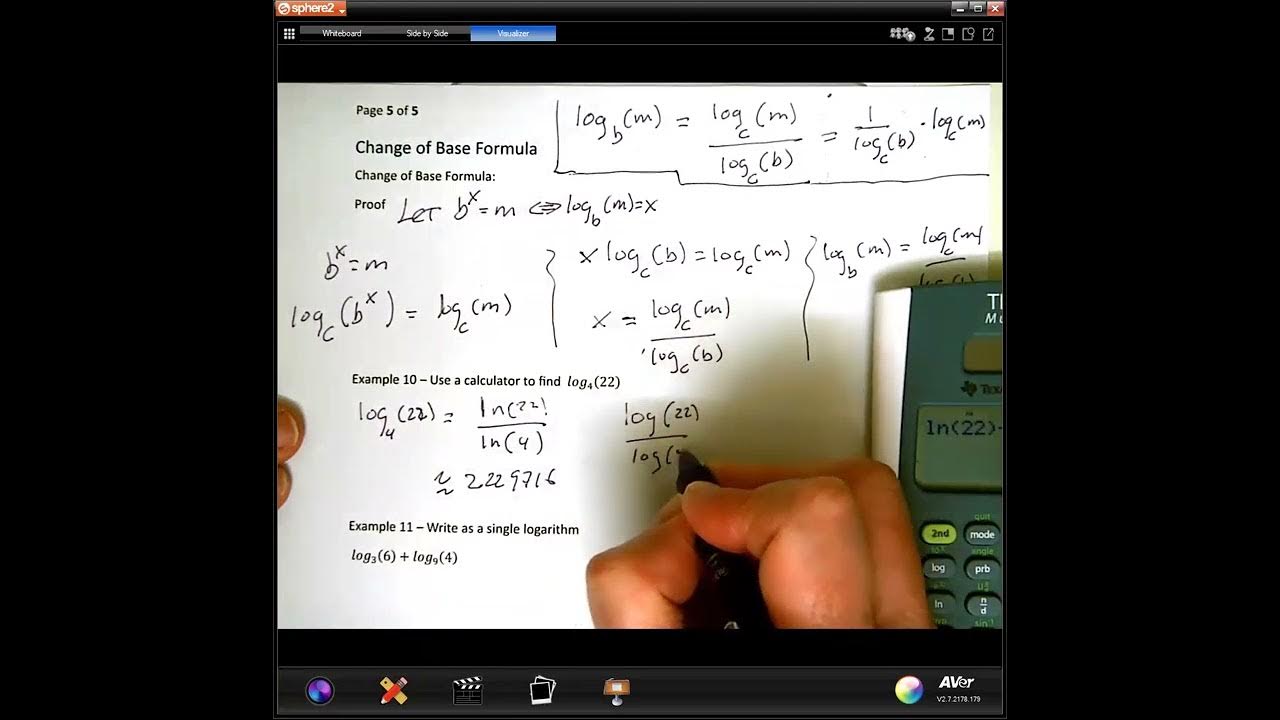 sphere2
Whiteboard Side by Side Visualizer
Page 5 of 5
log_b(m) = log_c(m) / log_c(b) = 1 / log_c(b) · log_c(m)
Change of Base Formula
Change of Base Formula:
Proof Let b^x = m ⇔ log_b(m) = x
b^x = m
log_c(b^x) = log_c(m)
x log_c(b) = log_c(m)
x = log_c(m) / log_c(b)
log_b(m) = log_c(m)
Example 10 – Use a calculator to find log_4(22)
log_4(22) = ln(22) / ln(4)
≈ 2.229716
log(22)
log(
Example 11 – Write as a single logarithm
log_3(6) + log_9(4)
ln(22)
quit
2nd mode
angle
log prb
ln n/d
AVer
V2.7.2178.179